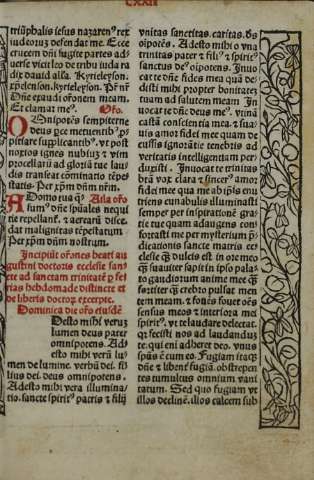 CXXII
triūphalis iesus nazarenꝰ rex
iudeorū defendat me. Ecce
crucem dñi fugite partes ad
uerse vicit leo de tribu iuda ra
dix dauid alla. Kyrieleyson.
xp̄eleyson. kyrieleyson. Pr̄ nr̄
Dñe exaudi orōnem meam.
Et clamor meꝰ. Oro.
Omnipotēs sempiterne
deus parce metuentibꝰ p̄
pitiare supplicantibꝰ. vt post
noxios ignes nubiū ⁊ vim
procellarū ad gloriā tue lau
dis transeat cōminatio tēpe
statis. Per xp̄m dñm nr̄m.
A Domo tua q̄s Alia ofo
fumꝰ dñe sp̄uales nequi
tie repellant᷑. ⁊ aerearū disce
dat malignitas tēpestatum
Per xp̄m dñm nostrum.
Incipiūt orōnes beati au
gustini doctoris ecclesie san
cte ad sanctam trinitatē ꝑ se
rias hebdomade distincte et
de libris doctoꝝ excerpte.
Dominica die oro eiusdē
Adesto mihi verū
lumen deus pater
omnipotens. Ad
esto mihi verū lu
men de lumine. verbū dei. fi
lius dei. deus omnipotens.
Adesto mihi vera illumina
tio. sancte spiritꝰ patris ⁊ filij
vnitas sanctitas. caritas. de̅s
oīpotēs. Adesto mihi o vna
trinitas pater ⁊ filiꝰ ⁊ spiritꝰ
sanctus de̅s oīpotens. Inuo
cat te dñe fides mea quā de
disti mihi propter bonitatē
tuam ad salutem meam. In
uocat te dñe deus meꝰ. viuā
castā conscientia mea. ⁊ su
uis amor fidei mee quam de
cussis ignorātie tenebris ad
veritatis intelligentiam per
duxisti. Inuocat te trinitas
bt̄a vox clara ⁊ sincerꝰ amor
fidei mee quā me ab ip̄is eni
triens cunabulis illuminasti
semper per inspirationē grati
e tue quam adaugens con
fortasti me per mysteriū p̄
dicationis sancte matris ec
clesie q̄ dulcis est in ore meo
q̄ suauiter sapit in ip̄so pala
to gaudiorum anime mee q̄
fortiter q̄ crebro pulsat men
tem meam. ⁊ fouēs fouet oēs
sensus meos ⁊ interiora mei
spiritꝰ. vt te laudare delectat.
qꝛ fecisti nos ad laudandū
te. qui eni adheret deo. vnus
spūs ē cum eo. Fugiam itaqꝫ
dñe ⁊ libent᷑ fugiā. obstrepen
tes tumultus omnium vani
tatum. Sed quo fugiam vt
illos declinē. illos calcem sub